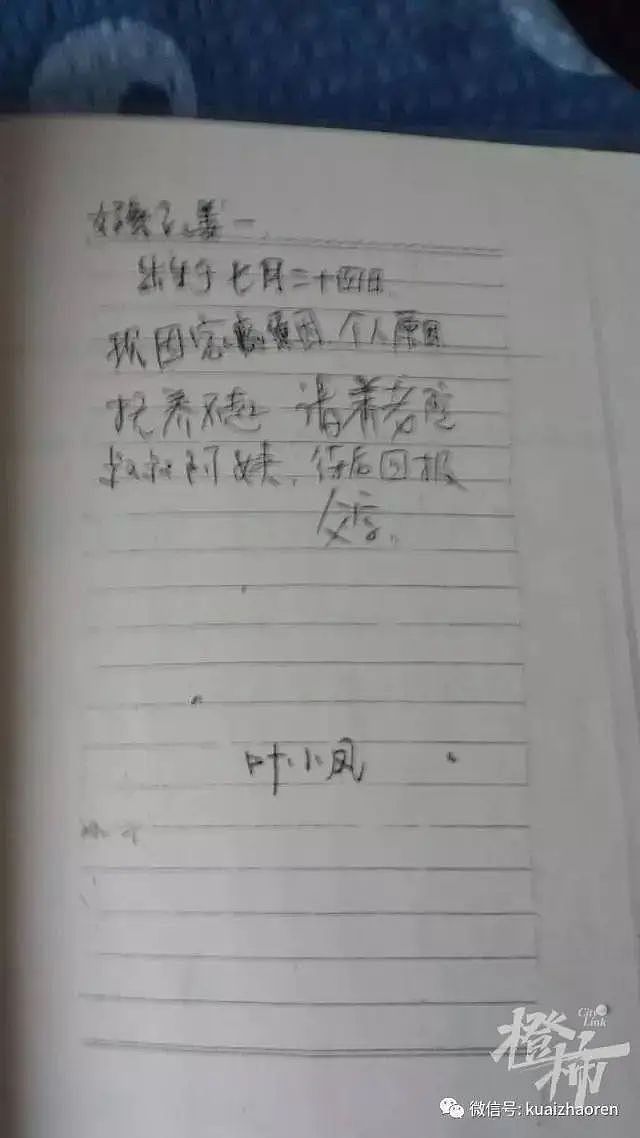 出生于七月二十四日
现因家庭原因.个人原因
抚养不起 请养老院
叔叔阿姨,待后回报
父字。
叶小凤
City Link
橙柿
微信号: kuaizhaoren